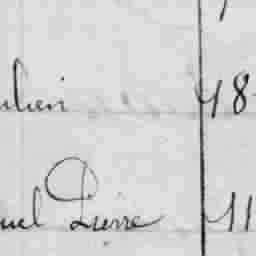 ulien 48
uel Pierre 11